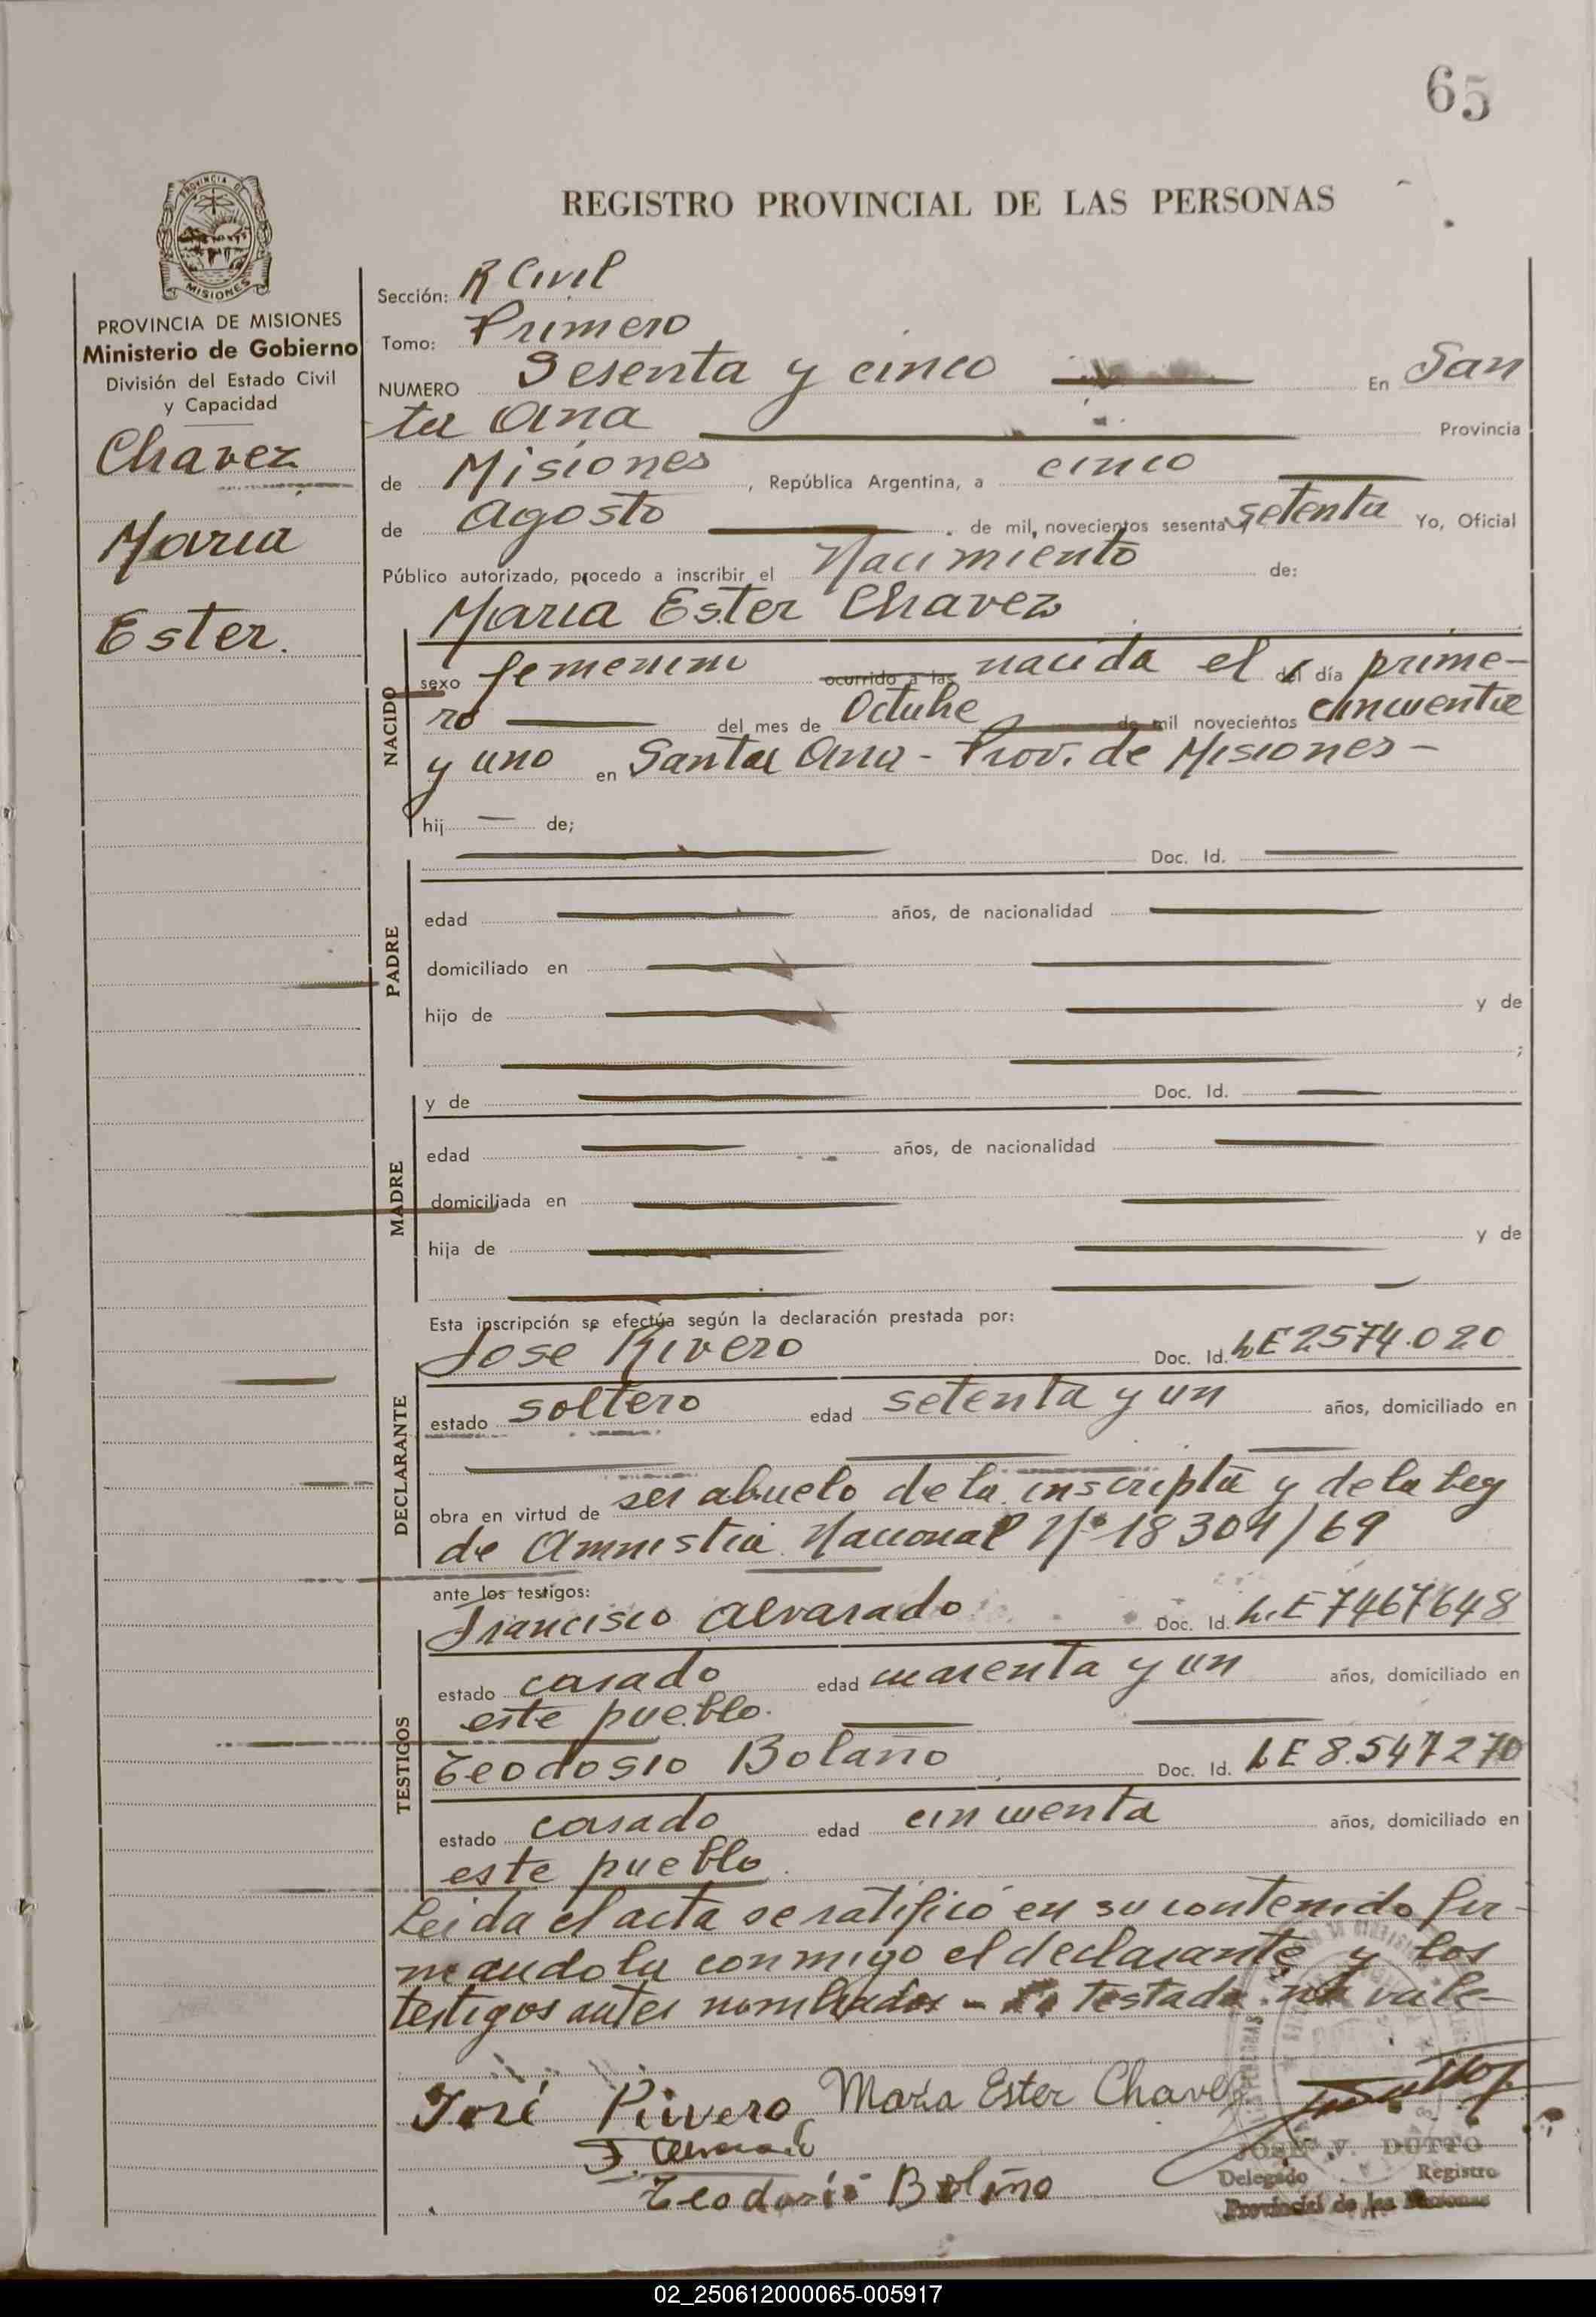 65
REGISTRO PROVINCIAL DE LAS PERSONAS
PROVINCIA DE
MISIONES
PROVINCIA DE MISIONES
Ministerio de Gobierno
División del Estado Civil
y Capacidad
Chavez
Maria
Ester.
Sección: R Civil
Tomo: Primero
NUMERO Sesenta y cinco En San
ta Ana Provincia
de Misiones, República Argentina, a cinco
de Agosto de mil, novecientos sesenta y setenta Yo, Oficial
Público autorizado, procedo a inscribir el Nacimiento de:
Maria Ester Chavez
NACIDO
sexo femenino ocurrido a las nacida el del día prime-
ro del mes de Octubre de mil novecientos cincuenta
y uno en Santa Ana - Prov. de Misiones -
hij — de;
PADRE
Doc. Id.
edad años, de nacionalidad
domiciliado en
hijo de y de
;
MADRE
y de Doc. Id.
edad años, de nacionalidad
domiciliada en
hija de y de
Esta inscripción se efectúa según la declaración prestada por:
DECLARANTE
Jose Rivero Doc. Id. LE 2574.020
estado soltero edad setenta y un años, domiciliado en
obra en virtud de ser abuelo de la inscripta y de la Ley
de Amnistia Nacional Nº 18304/69
ante los testigos:
TESTIGOS
Francisco Alvarado Doc. Id. L.E 7467648
estado casado edad cuarenta y un años, domiciliado en
este pueblo.
Teodosio Bolaño Doc. Id. LE 8.547270
estado casado edad cincuenta años, domiciliado en
este pueblo.
Leida el acta se ratificó en su contenido fir-
mandola conmigo el declarante y los
testigos antes nombrados - Testado no vale-
José Rivero Maria Ester Chavez
F. Alvarado
Teodosio Bolaño
JOSE V. DUTTO
Delegado Registro
Provincial de las Personas
02_250612000065-005917